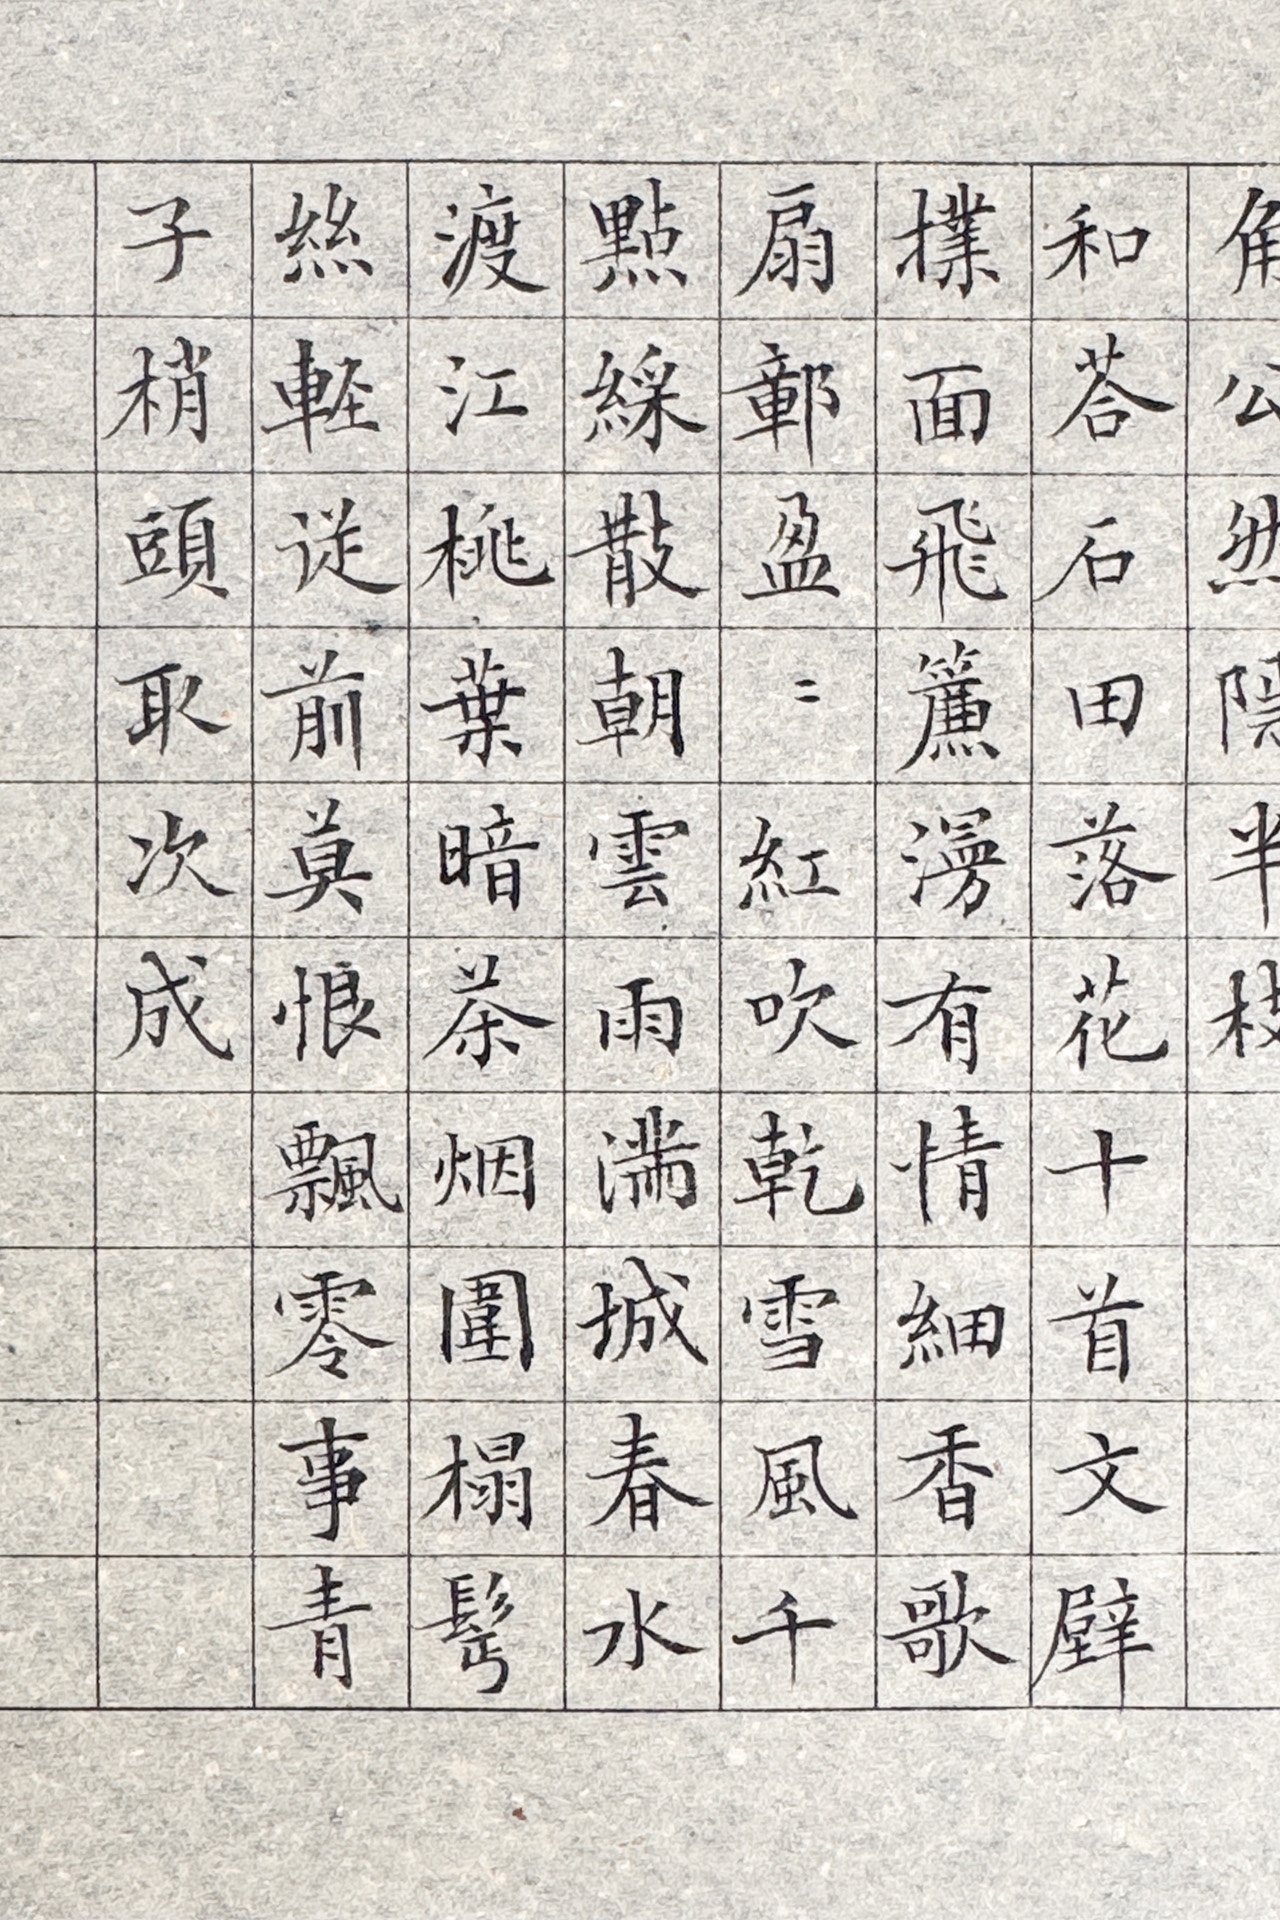 角公然隱半枝
和荅石田落花十首文壁
撲面飛簾漫有情細香歌
扇鄣盈〻紅吹乾雪風千
點綵散朝雲雨滿城春水
渡江桃葉暗茶烟圍榻鬢
絲軽従前莫恨飄零事青
子梢頭取次成